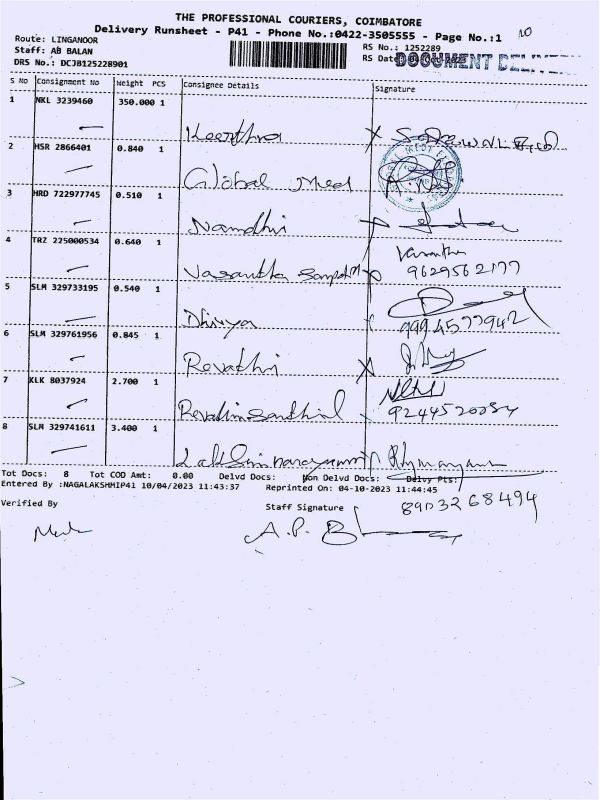 THE PROFESSIONAL COURIERS, COIMBATORE
Delivery Runsheet - P41 - Phone No.:0422-3505555 - Page No.:1
Route: LINGANOOR RS No.: 1252289
Staff: AB BALAN RS Date
DRS No.: DCJB125228901 DOCUMENT
S No Consignment No Weight PCS Consignee Details Signature
1 NKL 3239460 350.000 1
Keerthra
2 HSR 2866401 0.840 1
Global Med
3 HRD 722977745 0.510 1
Namdhi
4 TRZ 225000534 0.640 1 Vasantha
Vasantha Sampath 9629562177
5 SLM 329733195 0.540 1
Dhivya 9994577942
6 SLM 329761956 0.845 1
Revathi
7 KLK 8037924 2.700 1
9244520084
8 SLM 329741611 3.400 1
Tot Docs: 8 Tot COD Amt: 0.00 Delvd Docs: Non Delvd Docs: Delvy Pts:
Entered By :NAGALAKSHMIP41 10/04/2023 11:43:37 Reprinted On: 04-10-2023 11:44:45
Verified By Staff Signature 8903268494
A.P. B